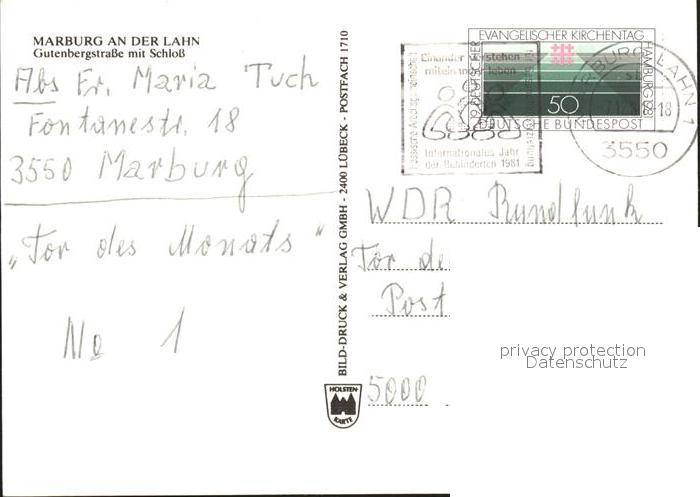 MARBURG AN DER LAHN
Gutenbergstraße mit Schloß
Abs Fr. Maria Tuch
Fontanestr. 18
3550 Marburg
„Tor des Monats“
No 1
BILD-DRUCK & VERLAG GMBH - 2400 LÜBECK - POSTFACH 1710
HOLSTEN-
KARTE
EVANGELISCHER KIRCHENTAG
19. DEUTSCHER
HAMBURG 1981
50
DEUTSCHE BUNDESPOST
Einander verstehen
miteinander leben
Internationales Jahr
der Behinderten 1981
LAHN 1
18
3550
WDR Rundfunk
Tor de
Post
5000
privacy protection
Datenschutz